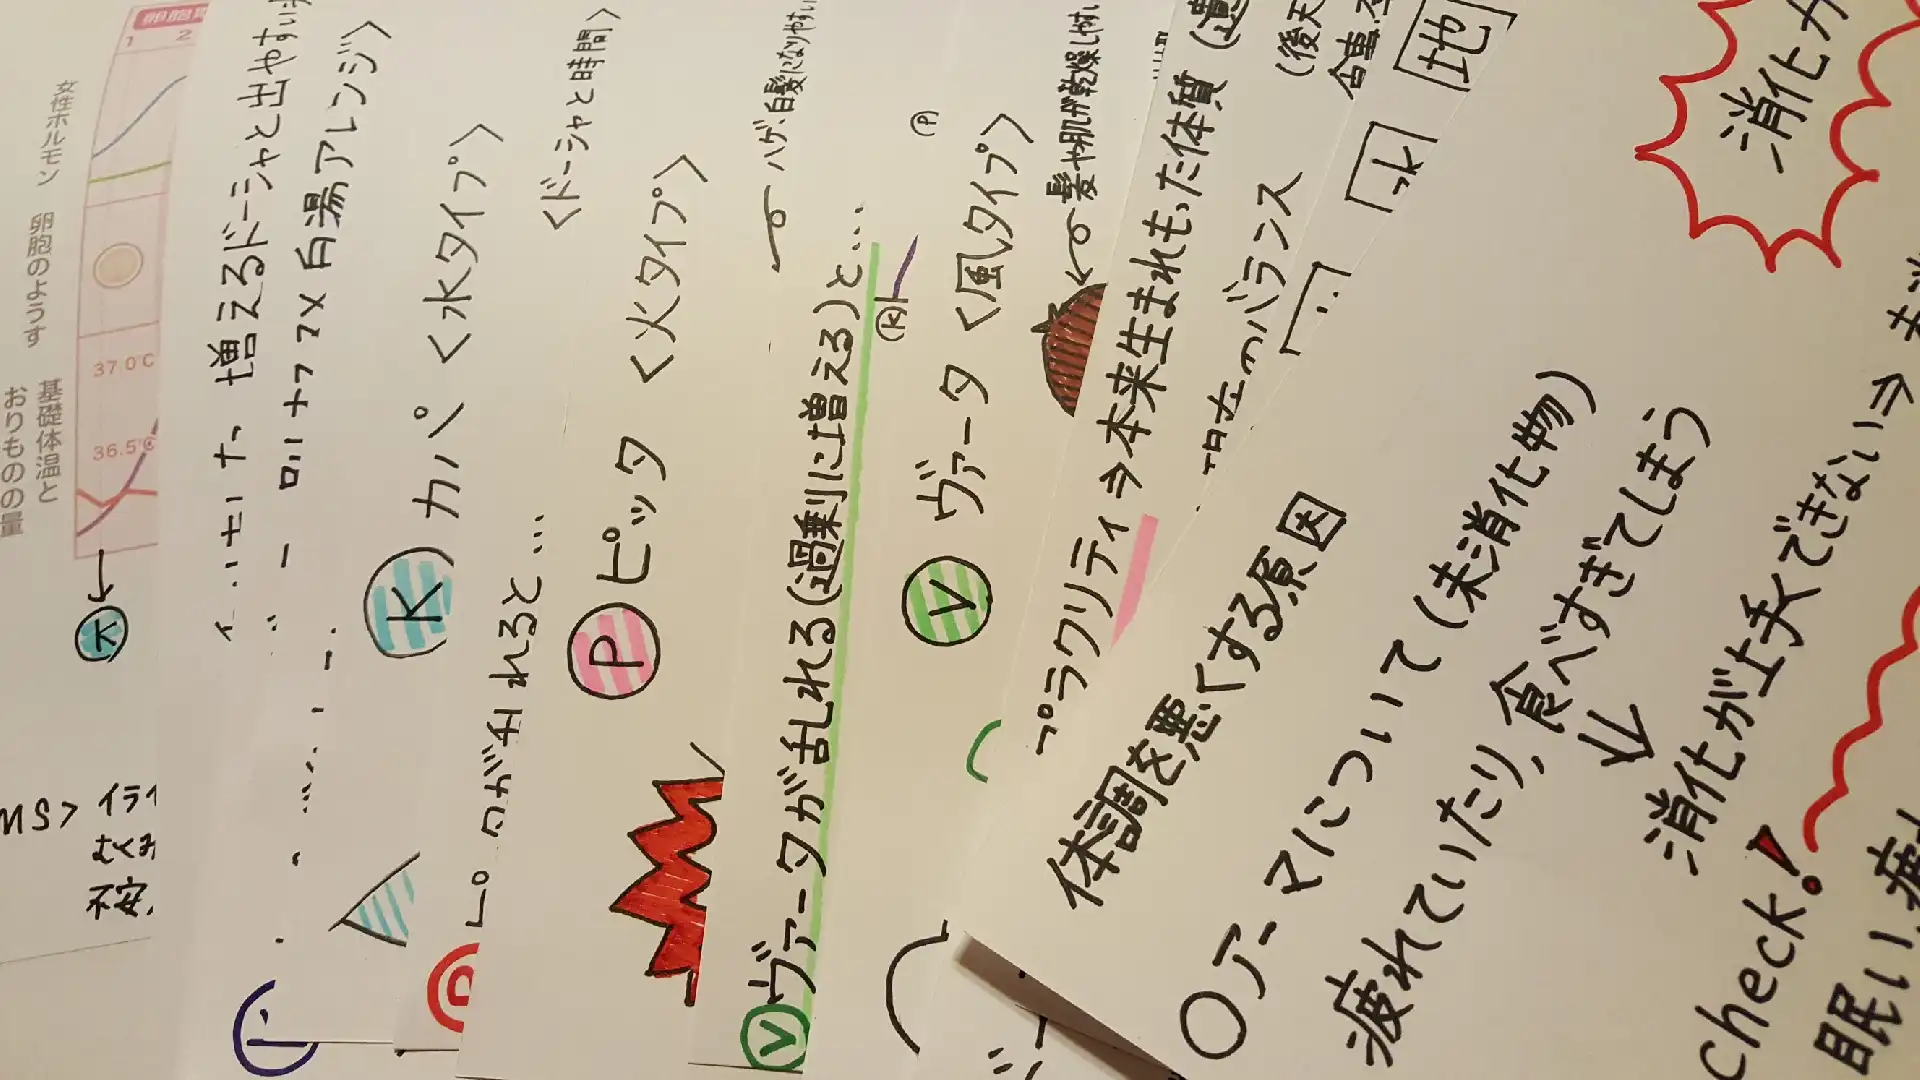 女性ホルモン
卵胞のようす
基礎体温と
おりものの量
1 2
37.0℃
36.5℃
水
MS>
イライ
むくみ
不安
増えるドーシャと出やすい
白湯アレンジ>
K カパ <水タイプ>
が乱れると…
<ドーシャと時間>
P ピッタ <火タイプ>
ハゲ、白髪になりやすい
V ヴァータが乱れる(過剰に増える)と…
P
K
V ヴァータ <風タイプ>
髪や肌が乾燥しやすい
プラクリティ⇒本来生まれもった体質
(後天
のバランス
地
水
体調を悪くする原因
○アーマについて(未消化物)
疲れていたり、食べすぎてしまう
↓
消化が上手くできない⇒
消化が
Check!
眠い、